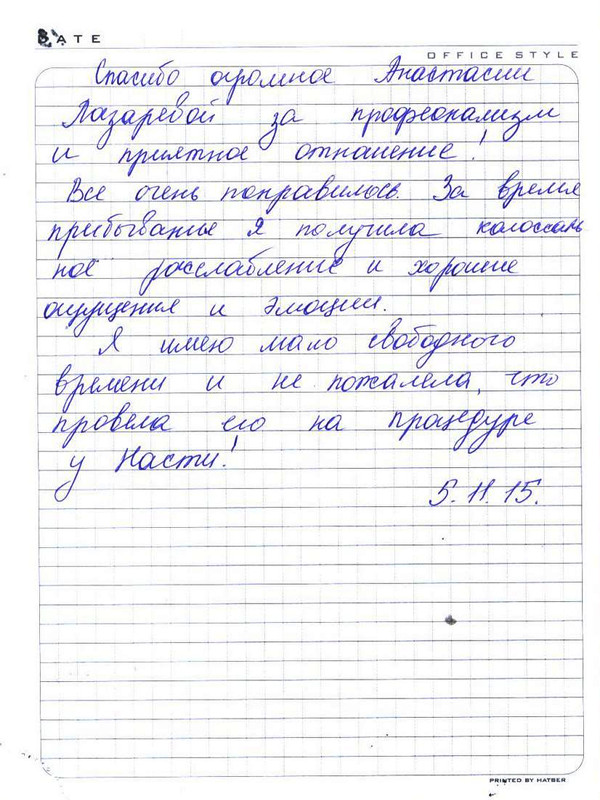 DATE
OFFICE STYLE
Спасибо огромное Анастасии
Лазаревой за професионализм
и приятное отношение!
Все очень понравилось. За время
прибывание я получила колоссаль
ное расслабление и хорошие
ощущения и эмоции.
Я имею мало свободного
времени и не пожалела, что
провела его на процедуре
у Насти!
5.11.15.
PRINTED BY HATBER